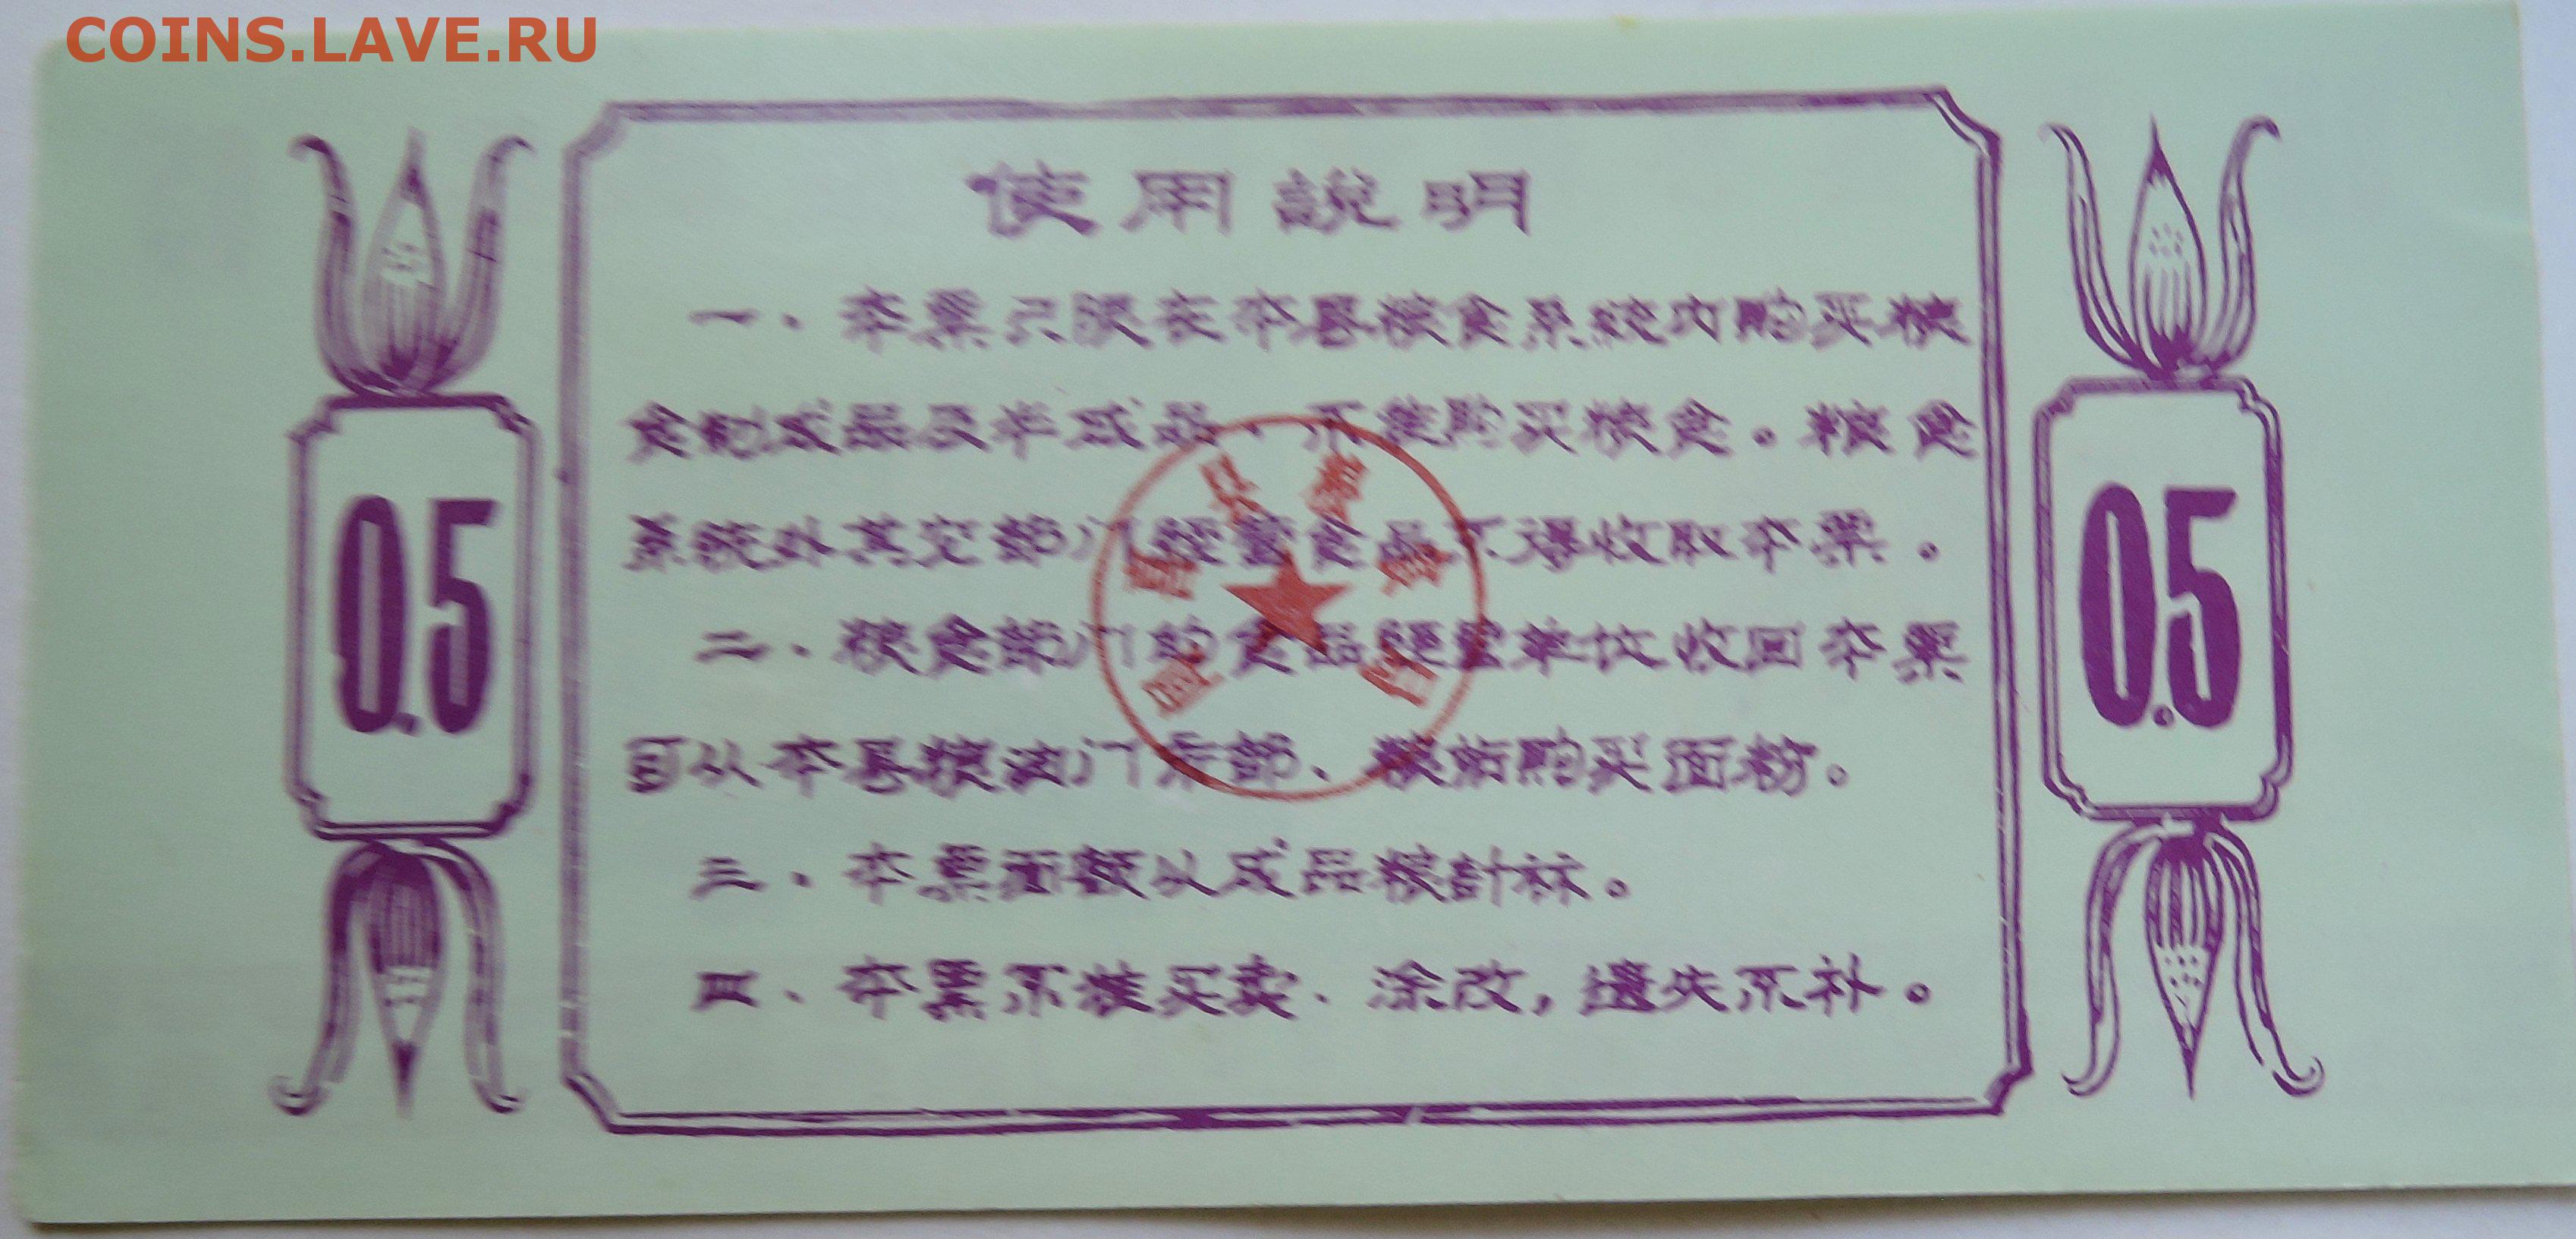 COINS.LAVE.RU
使用說明
一、本票只限在本县粮食系統内购买粮
食制成品及半成品、不准购买粮食。粮食
系統外其它部门經营食品不得收取本票。
二、粮食部门的食品經营单位收回本票
可从本县粮油门市部、粮站购买面粉。
三、本票面额以成品粮計标。
四、本票不准买卖、涂改，遺失不补。
0.5
0.5